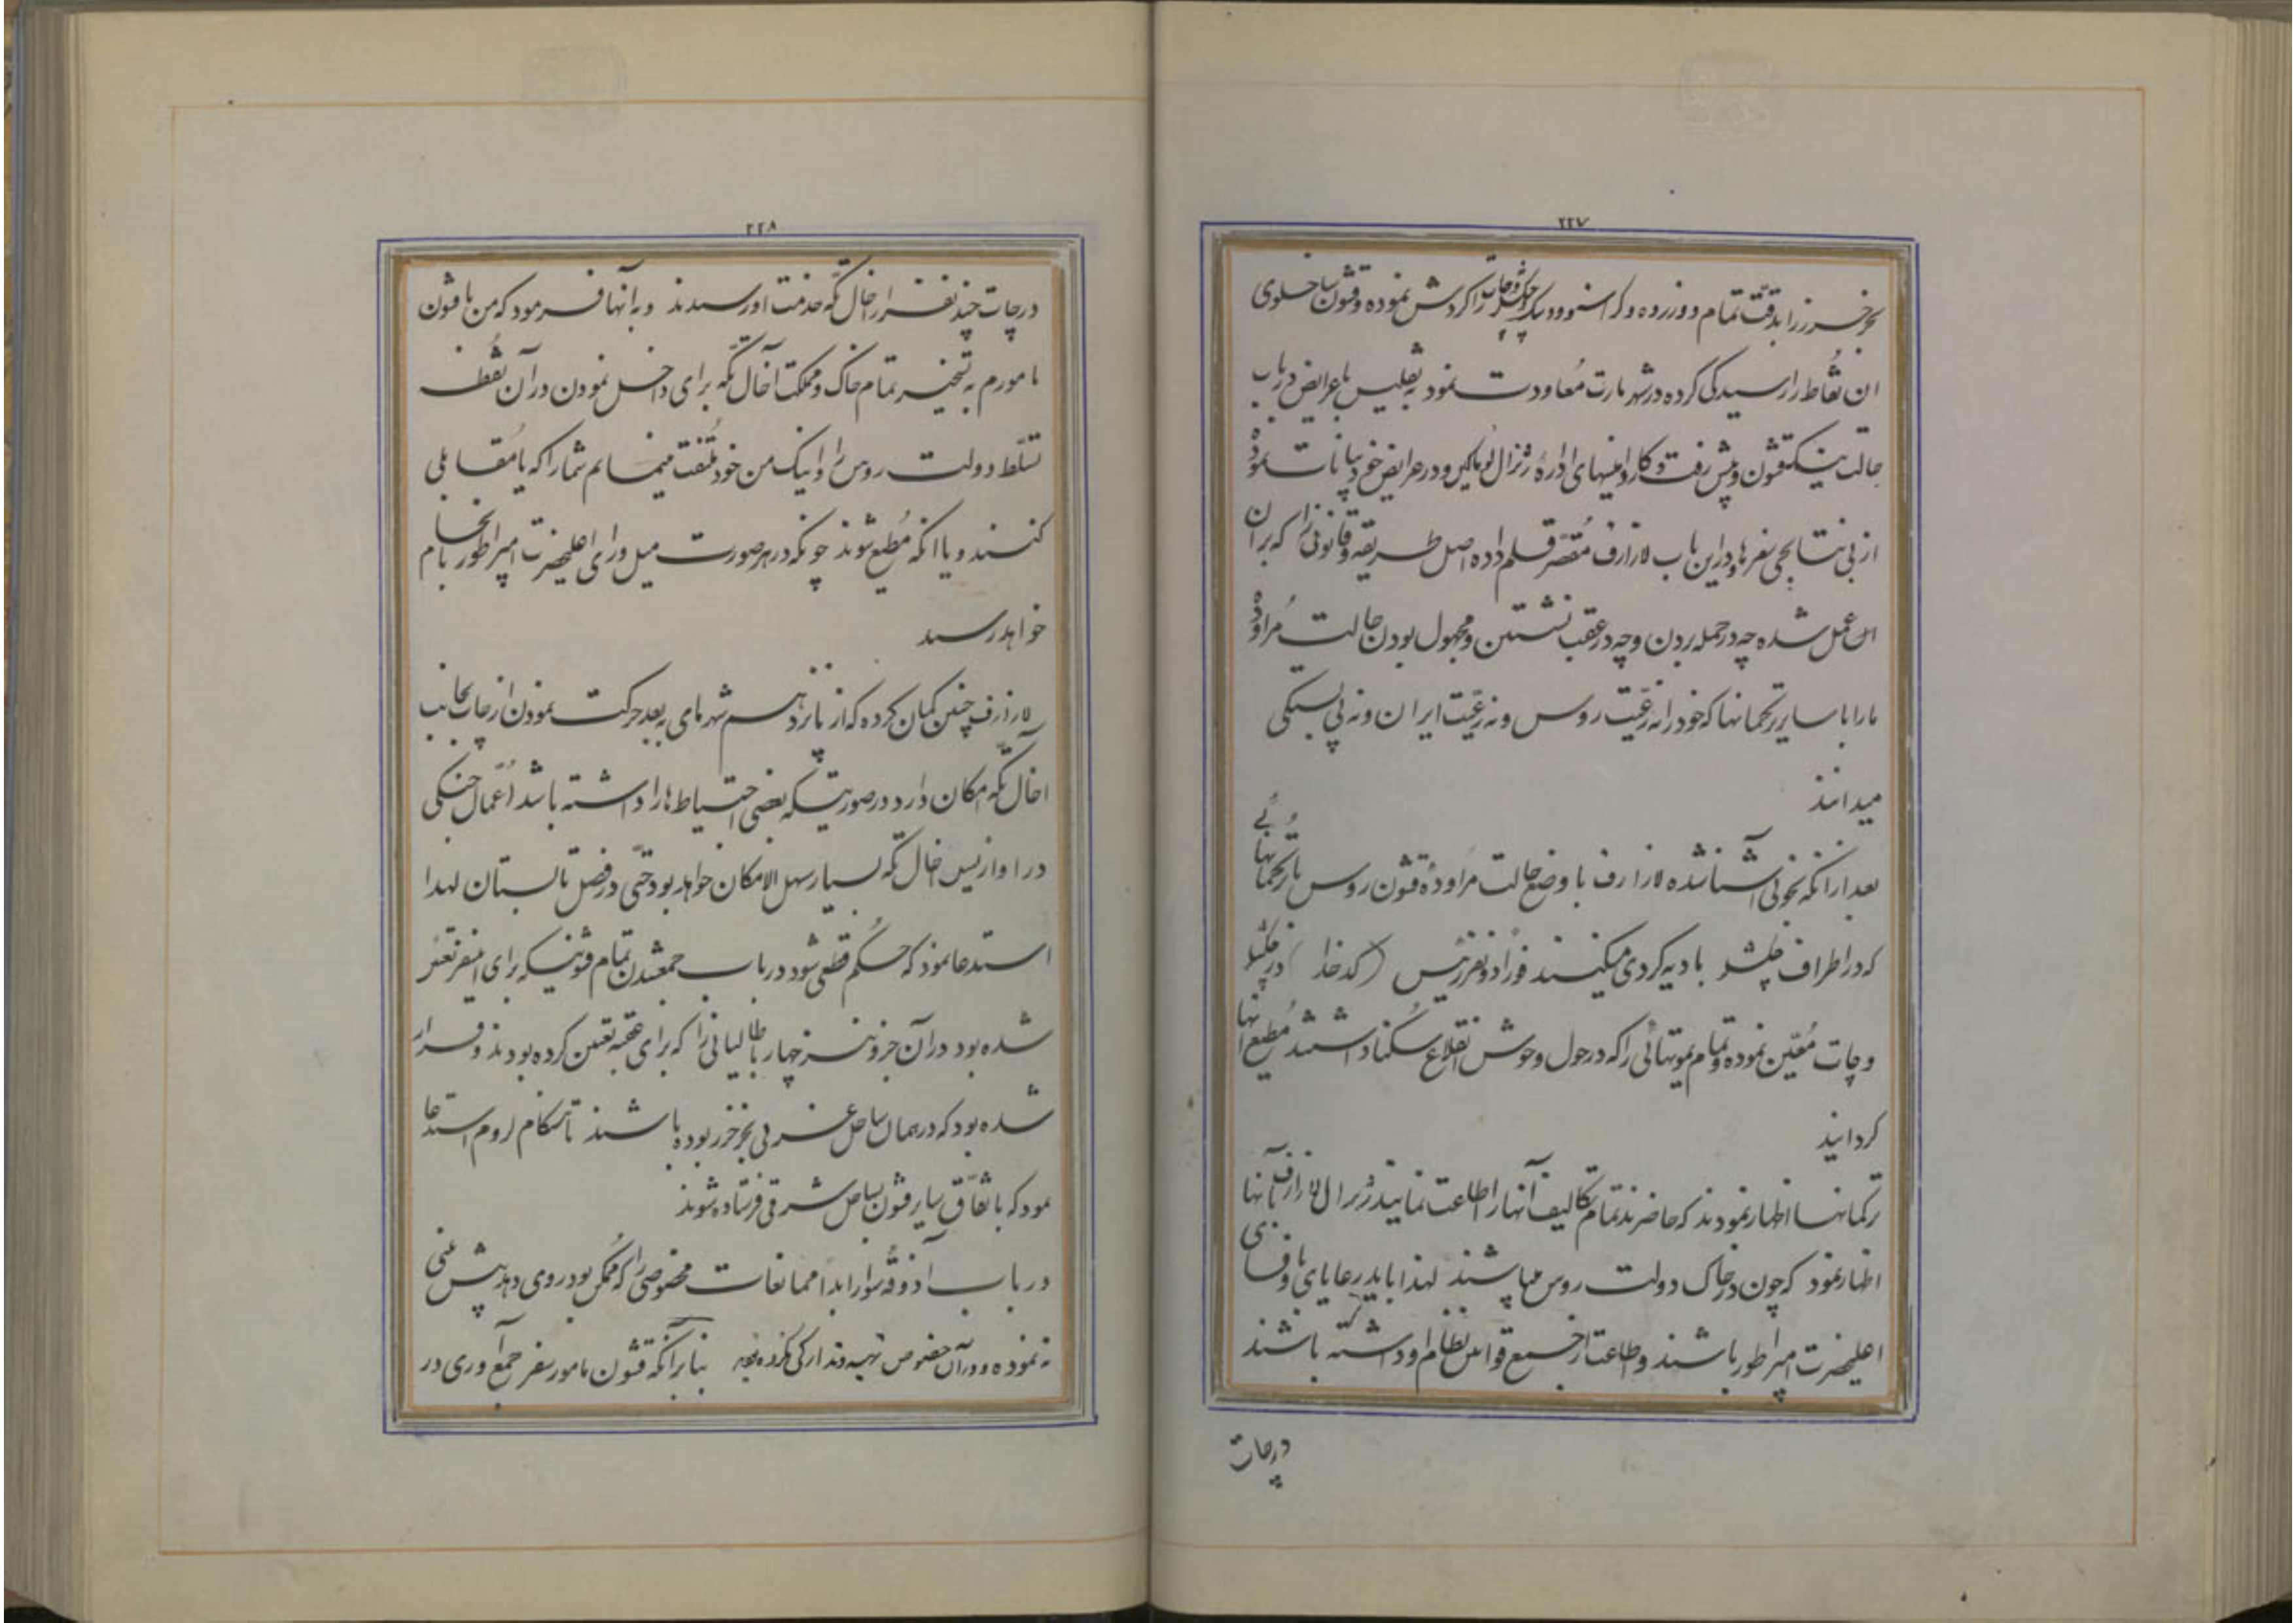 ۲۲۷
بحر خزر را بدقت تمام دوزروه و کراسنوودسک و چکشلر و چات را گردش نموده و قشون ساخلوی
ان نقاط را رسیدگی کرده در شهر مارت معاودت نمود به تفلیس با عرایض در باب
حالت قشون و پیش رفت و کار دانیهای اداره ژنرال لوماکین و در عرایض خود بیانات نموده
از بی نتایجی سفرها و در این باب لازارف مقصر قلم داده اصل طریقه و قانونی را که بر ان
عمل شده چه در حمله بردن و چه در عقب نشستن و مجهول بودن حالت مراوده
ما را با سایر ترکمانها که خود را نه رعیت روس و نه رعیت ایران و نه بی بستگی
میدانند
بعد از انکه بخوبی آشنا شده لازارف با وضع حالت مراوده قشون روس با ترکمانهائی
که در اطراف چکشلر بادیه گردی میکنند فورا دو نفر رئیس (کدخدا) در چکشلر
و چات معین نموده و تمام یموتهائی را که در حول و حوش انقلاع سکنا داشتند مطیع انها
گردانید
ترکمانها اظهار نمودند که حاضرند تمام تکالیف آنها را اطاعت نمایند ژنرال لازارف بآنها
اظهار نمود که چون در خاک دولت روس میباشند لهذا باید رعایای با وفای
اعلیحضرت امپراطور باشند و اطاعت از جمیع قوانین نظام او داشته باشند
در چات
۲۲۸
در چات چند نفر از اخال تکه خدمت او رسیدند و به انها فرمود که من با قشون
مامورم به تسخیر تمام خاک و مملکت آخال تکه برای داخل نمودن در آن نقطه
تسلط دولت روس را و اینک من خود ملتفت مینمایم شما را که یا مقابلی
کنند و یا انکه مطیع شوند چونکه در هر صورت میل و رای اعلیحضرت امپراطور بانجام
خواهد رسید
لازارف چنین گمان کرده که از پانزدهم شهر مای به بعد حرکت نمودن از چات بجانب
اخال تکه امکان دارد در صورتیکه بعضی احتیاط ها را داشته باشد اعمال جنگی
در اخال تکه بسیار سهل الامکان خواهد بود حتی در فصل تابستان لهذا
استدعا نمود که حکم قطعی شود در باب جمعشدن تمام قشونیکه برای اینسفر تعین
شده بود در آن جزو نیز چهار باطالیانی را که برای عقبه تعین کرده بودند و قرار
شده بود که در همان ساحل غربی بحر خزر بوده باشند تا هنگام لزوم استدعا
نمود که باتفاق سایر قشون بساحل شرقی فرستاده شوند
در باب آذوقه سوار ابدا ممانعات مخصوصی را که ممکن بود روی دهد پیش بینی
نه نموده و در آن خصوص تهیه و تدارکی نکرده بود بنابر آنکه قشون مامور سفر جمع آوری در